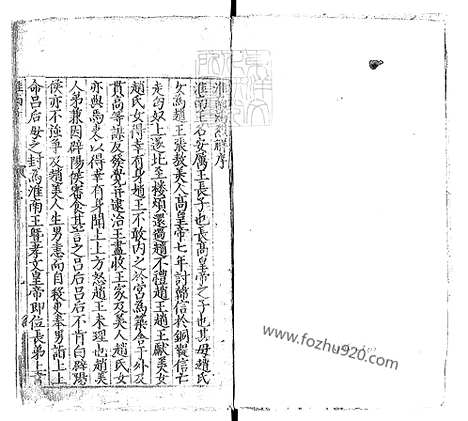 淮南鴻烈解序
淮南王名安厲王長子也長高皇帝之子也其母趙氏
女為趙王張敖美人高皇帝七年討韓信於銅鞮信亡
走匈奴上遂北至樓煩還過趙不禮趙王趙王獻美女
趙氏女得幸有身趙王不敢內之於宮為築舍于外及
貫高等謀反發覺并逮治王盡收王家及美人趙氏女
亦與焉吏以得幸有身聞上上方怒趙王未理也趙美
人弟兼因辟陽侯審食其言之呂后呂后不肯白辟陽
侯亦不強爭及趙美人生男恚而自殺吏奉男詣上上
命呂后母之封為淮南王暨孝文皇帝即位長弟上書
www.fozhu920.com